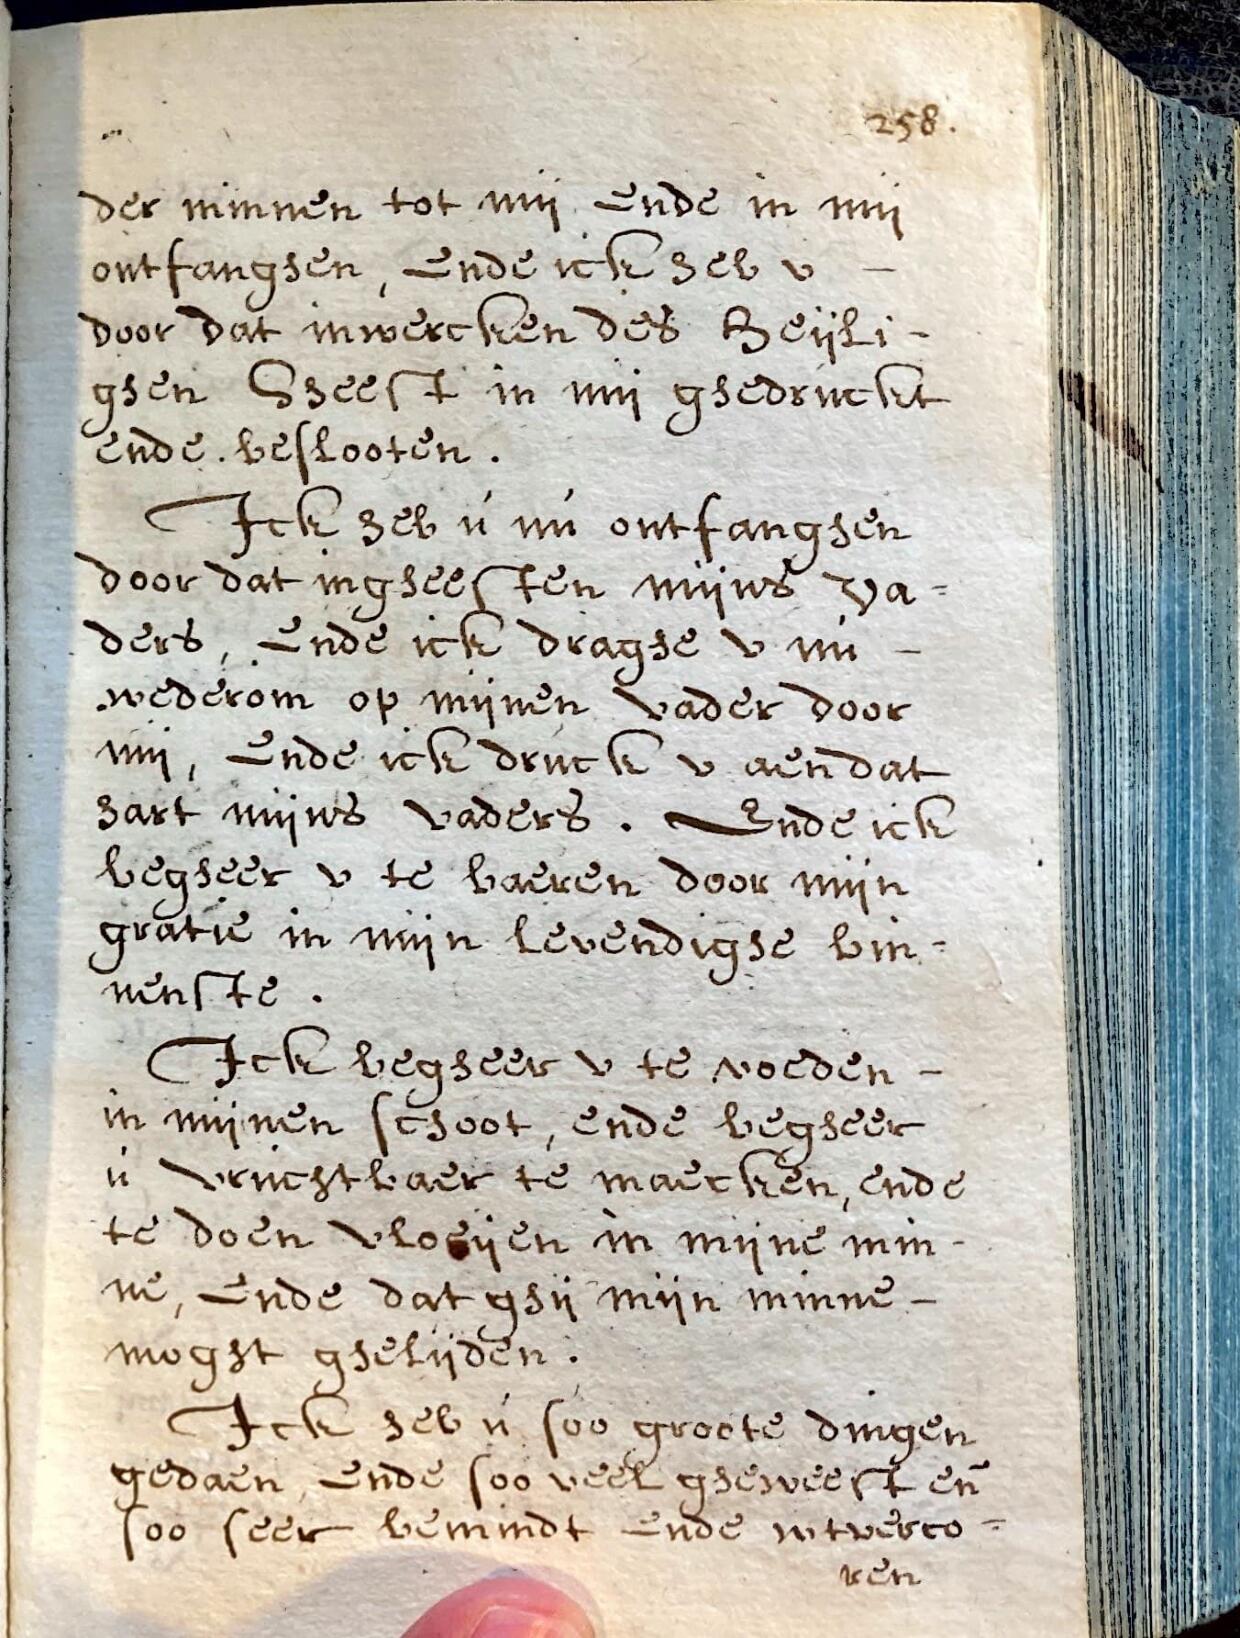 258.
der minnen tot mij Ende in mij
ontfanghen, Ende ick heb v -
door dat inwercken des Heijli-
ghen Gheest in mij ghedruckt
ende beslooten.
Ick heb ú nú ontfanghen
door dat ingheesten mijns va=
ders, Ende ick draghe v nú -
wederom op mijnen vader door
mij, Ende ick druck v aen dat
hart mijns vaders. Ende ick
begheer v te baeren door mijn
gratie in mijn levendighe bin=
nenste.
Ick begheer v te voeden -
in mijnen schoot, ende begheer
ú vruchtbaer te maecken, ende
te doen vloeijen in mijne min-
ne, Ende dat ghij mijn minne -
moght ghelijden.
Ick heb ú soo groote dingen
gedaen, Ende soo veel gheweest eñ
soo seer bemindt Ende wtverco=
ren